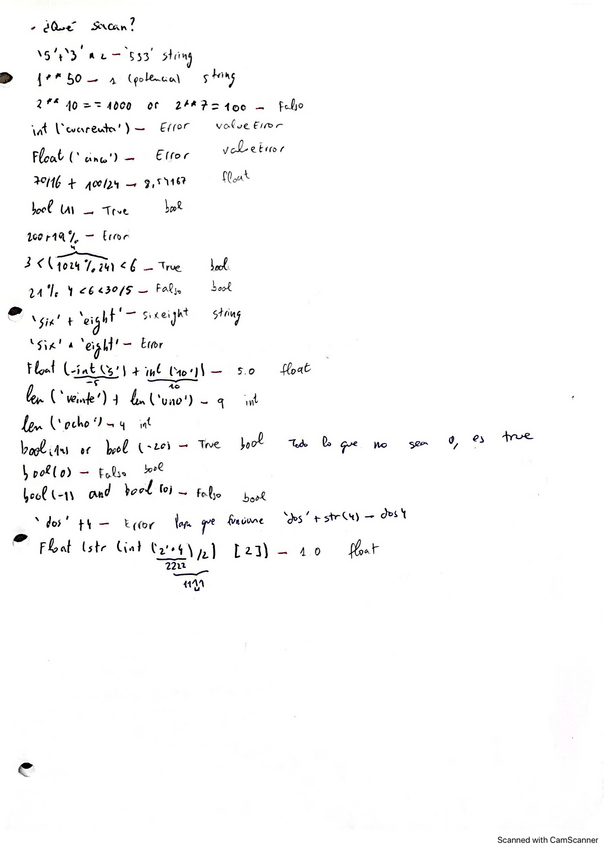 - ¿Qué sacan?
'5'+'3' * 2 - '533' string
1**50 - 1 (potencia) string
2**10 == 1000 or 2**7 = 100 - Falso
int ('cuarenta') - Error valueError
Float ('cinco') - Error valueError
70/16 + 100/24 - 8,54167 float
bool (1) - True bool
200+19% - Error
4
3 < (1024 % 24) < 6 - True bool
21 % 4 < 6 < 30/5 - Falso bool
'six' + 'eight' - sixeight string
'six' * 'eight' - Error
Float (-int ('5') + int ('10')) - 5.0 float
-5 10
len ('veinte') + len ('uno') - 9 int
len ('ocho') - 4 int
bool (10) or bool (-20) - True bool Todo lo que no sea 0, es true
bool (0) - Falso bool
bool (-1) and bool (0) - Falso bool
'dos' + 4 - Error para que funcione 'dos' + str(4) - dos4
Float (str (int ('2'*4) /2) [2]) - 1.0 float
2222
1111
Scanned with CamScanner